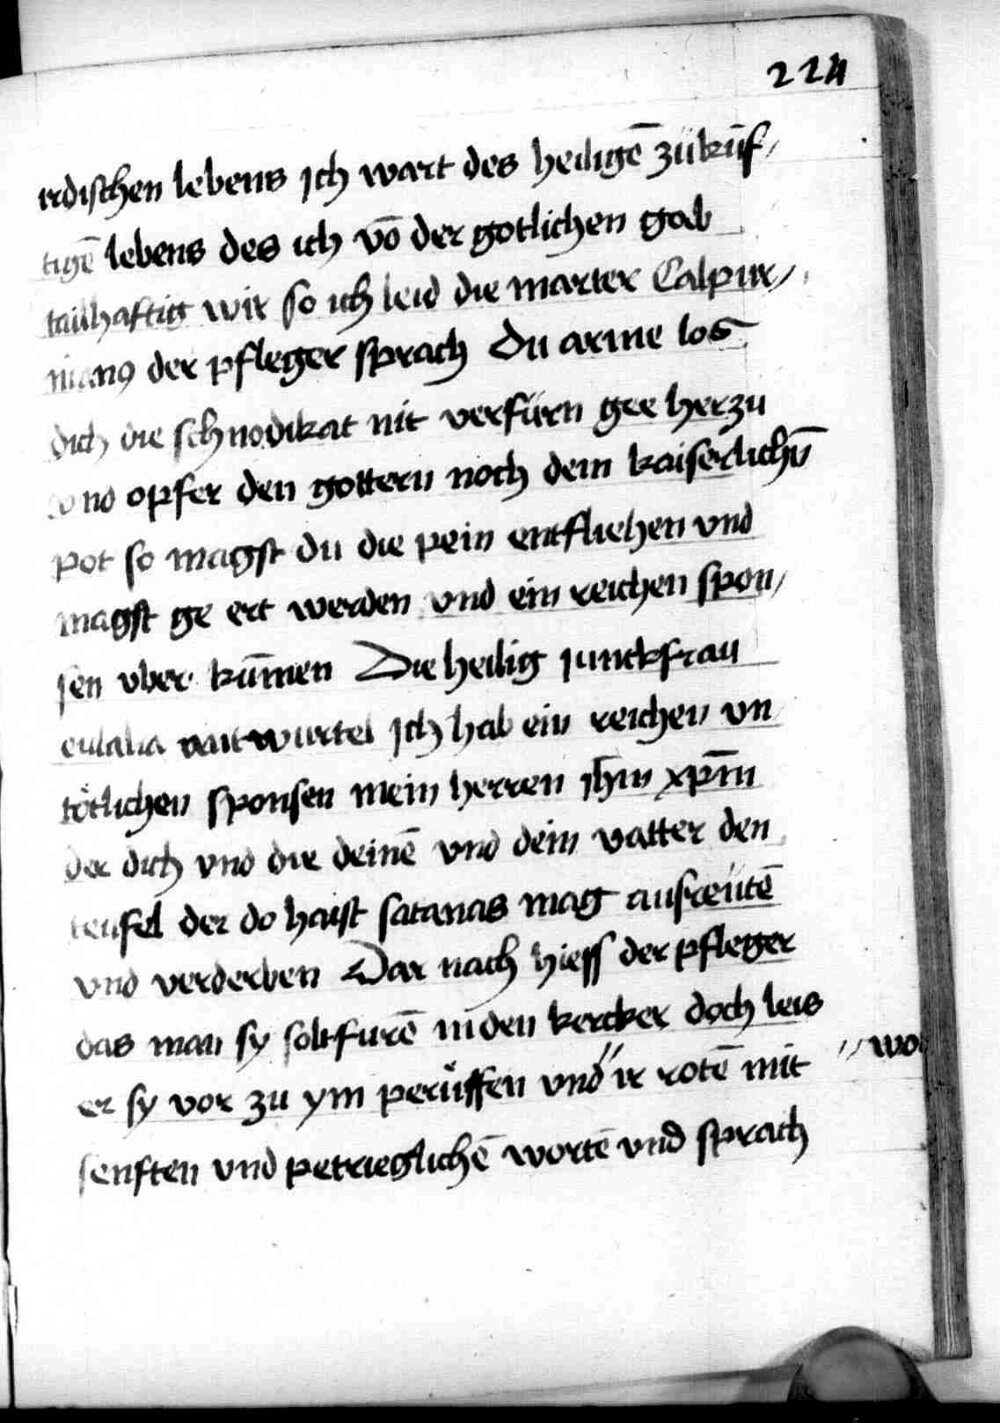 224
irdischen lebens Ich wart des heiligē zükūf-
tigē lebens des ich vō der gotlichen gab
tailhaftig wir so ich leid die marter Calpur-
nianꝰ der pfleger sprach Du arme los
dich die schnodikat nit verfürn gee herzu
vnd opfer den gottern noch dem kaiserlichē
pot so magst du die pein entfliehen vnd
magst ge ert werden vnd ein reichen spon-
sen vber kūmen Die heilig junckfrau
eulalia antwurtet Ich hab ein reichen vn
tötlichen sponsen mein herren jhm̄ xpm̄
der dich vnd die deinē vnd dein vatter den
teufel der do haist satanas mag ausreütē
vnd verderben Dar nach hiess der pfleger
das man sy solt furē in den kercker doch leis
er sy vor zu ym perüffen vnd " ir rotē mit " wo
senften vnd petrieglichē wortē vnd sprach